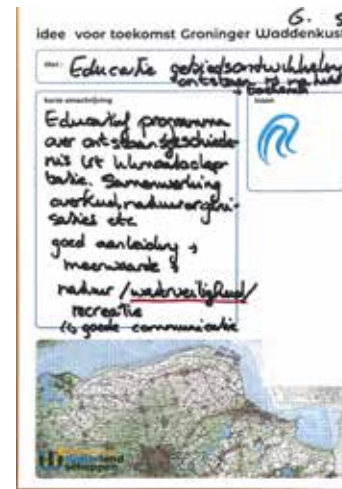 6. S
idee voor toekomst Groninger Waddenkust
titel: Educatie gebiedsontwikkeling
ontstaan
toekomst
korte omschrijving
Educatief programma
over ontstaansgeschiede-
nis t/t klimaatadap-
tatie. Samenwerking
overheid, natuurorgani-
saties etc
goed aanleiding →
meerwaarde
natuur / waterveiligheid /
recreatie
↳ goede communicatie